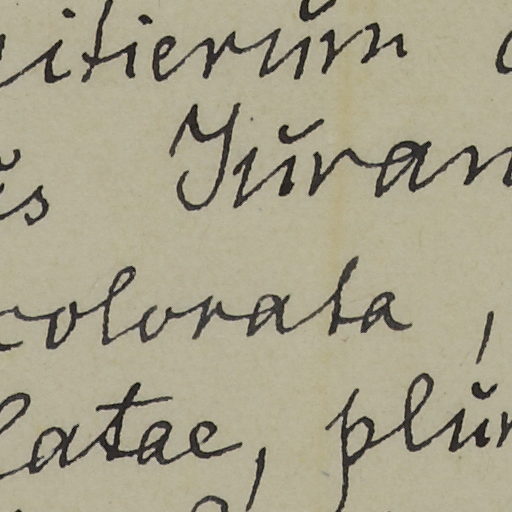 itierŭm
ŭs Jŭran
colorata,
latae, plŭr